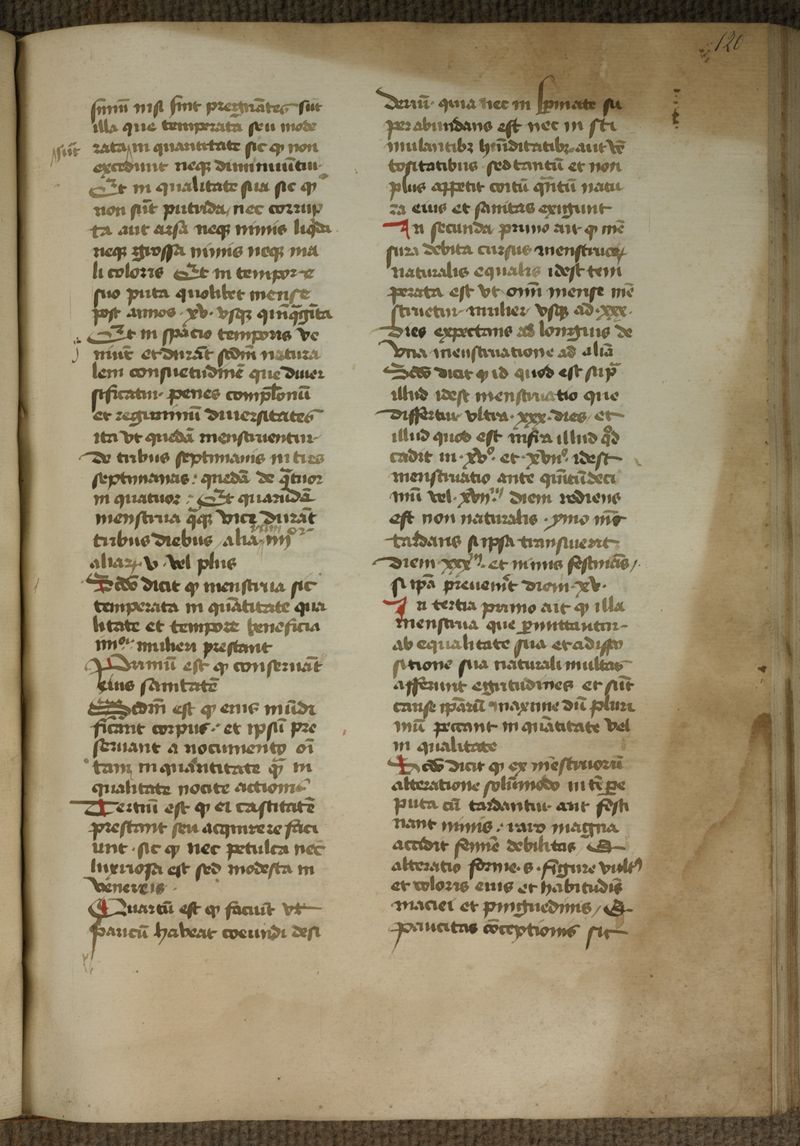 120
simū nisi sint pregnātes sūt
illa que temperata seu mode
rata in quantitate sic ꝙ non
sūt
excedunt neqꝫ diminuūtur
Et in qualitate sua sic ꝙ
non sūt putrida, nec corrup
ta aut arsa neqꝫ nimis liqda
neqꝫ grossa nimis neqꝫ ma
li coloris Et in tempore
suo puta quolibet mense
post annos · xv · vsqꝫ qinqgīta
Et in spacio temporis ve
niūt et durāt scdm̄ natura
lem consuetudinē que diuer
sificatur penes complōnū
et regiminū diuersitates
ita vt quedā menstruentur
de tribus septimanis in tres
septimanas : quedā de qtuor
in quatuor : Et quarūdā
menstrua qn̄qꝫ vicꝫ durāt
tribus diebus alia iiijor
aliaꝝ v · vel plus
Scdo dicit ꝙ menstrua sic
temperata in quātitate qua
litate et tempore beneficia
iiijor mulieri prestant
Primū est ꝙ conseruāt
eius sanitatē
Scdm̄ est ꝙ eius mūdi
ficant corpus · et ipsū pre
seruant a nocumento oī
tam in quantitate qm̄ in
qualitate nocīte actionis
Tertiū est ꝙ ei castitatē
prestant seu acquirere faci
unt · sic ꝙ nec petulca nec
luxuriosa est sed modesta in
venereis ·
Quartū est ꝙ faciūt vt
paucū habeat coeundi desi
deriū · quia nec in spīnate su
per abundans est nec in sti
mulantibꝫ hūiditatibꝫ aut vē
tositatibus sed tantū et non
plus appetit coitū qntū natu
ra eius et sanitas exigunt
In secunda primo ait ꝙ mē
sura debita cursus menstruoꝝ
naturalis equalis idest tem
perata est vt omī mense mē
struetur mulier vsqꝫ ad · xxx ·
dies expectans ad longius de
vna menstruatione ad aliā
Scdo dicit ꝙ id quod est supͣ
illud idest menstruatio que
differtur vltra · xxx · dies et
illud quod est infra illud qd
cadit in · xvo · et xvijo · idest
menstruatio ante quītūdeci
mū vel · xvijū diem rediens
est non naturalis · ymo nīs
tardans si ipsa transiuerit
diem xxxm̄ · et nimis festinās /
si ipā preuenīt diem · xv ·
In tertia primo ait ꝙ illa
menstrua que ꝑmittantur
ab equalitate sua et a dispo
sitione sua naturali multas
afferunt egritudines et sūt
cause ipāꝝ maxime dū pluri
mū peccant in quātitate vel
in qualitate
Scdo dicit ꝙ ex mēstruorū
alteratione solūmodo in tēꝑe
puta cū tardantur aut festi
nant nimis : raro magna
accidit femīe debilitas Et
alteratio forme · s · figure vult9
et coloris eius et habitudīs
maciei et pinguedinis / Et
paucitas cōceptionis sic